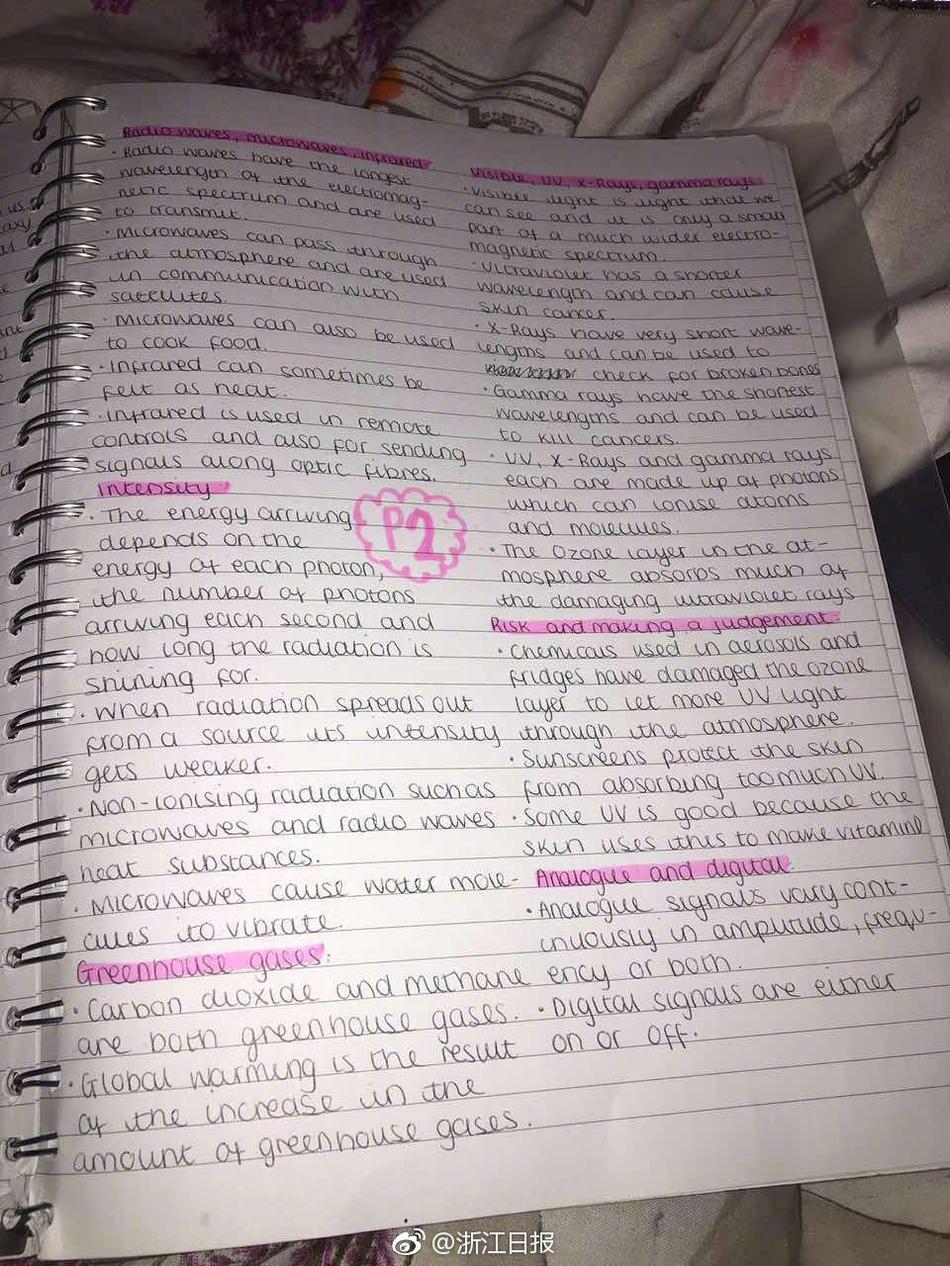 Radio waves, microwaves, infrared
• Radio waves have the longest
wavelength of the electromag-
netic spectrum and are used
to transmit.
• Microwaves can pass through
the atmosphere and are used
in communication with
satellites.
• Microwaves can also be used
to cook food.
• Infrared can sometimes be
felt as heat.
• Infrared is used in remote
controls and also for sending
signals along optic fibres.
Intensity
• The energy arriving
depends on the
energy of each photon,
the number of photons
arriving each second and
how long the radiation is
shining for.
• When radiation spreads out
from a source its intensity
gets weaker.
• Non-ionising radiation such as
microwaves and radio waves
heat substances.
• Microwaves cause water mole-
cules to vibrate.
Greenhouse gases:
• Carbon dioxide and methane
are both greenhouse gases.
• Global warming is the result
of the increase in the
amount of greenhouse gases.
P2
Visible, UV, X-Rays, gamma rays
• Visible light is light that we
can see and it is only a small
part of a much wider electro-
magnetic spectrum.
• Ultraviolet has a shorter
wavelength and can cause
skin cancer.
• X-Rays have very short wave-
lengths and can be used to
check for broken bones
• Gamma rays have the shortest
wavelengths and can be used
to kill cancers.
• UV, X-Rays and gamma rays
each are made up of photons
which can ionise atoms
and molecules.
• The Ozone layer in the at-
mosphere absorbs much of
the damaging ultraviolet rays
Risk and making a judgement:
• Chemicals used in aerosols and
fridges have damaged the ozone
layer to let more UV light
through the atmosphere.
• Sunscreens protect the skin
from absorbing too much UV.
• Some UV is good because the
skin uses this to make vitamin D
Analogue and digital.
• Analogue signals vary cont-
inuously in amplitude, frequ-
ency or both.
• Digital signals are either
on or off.
@浙江日报